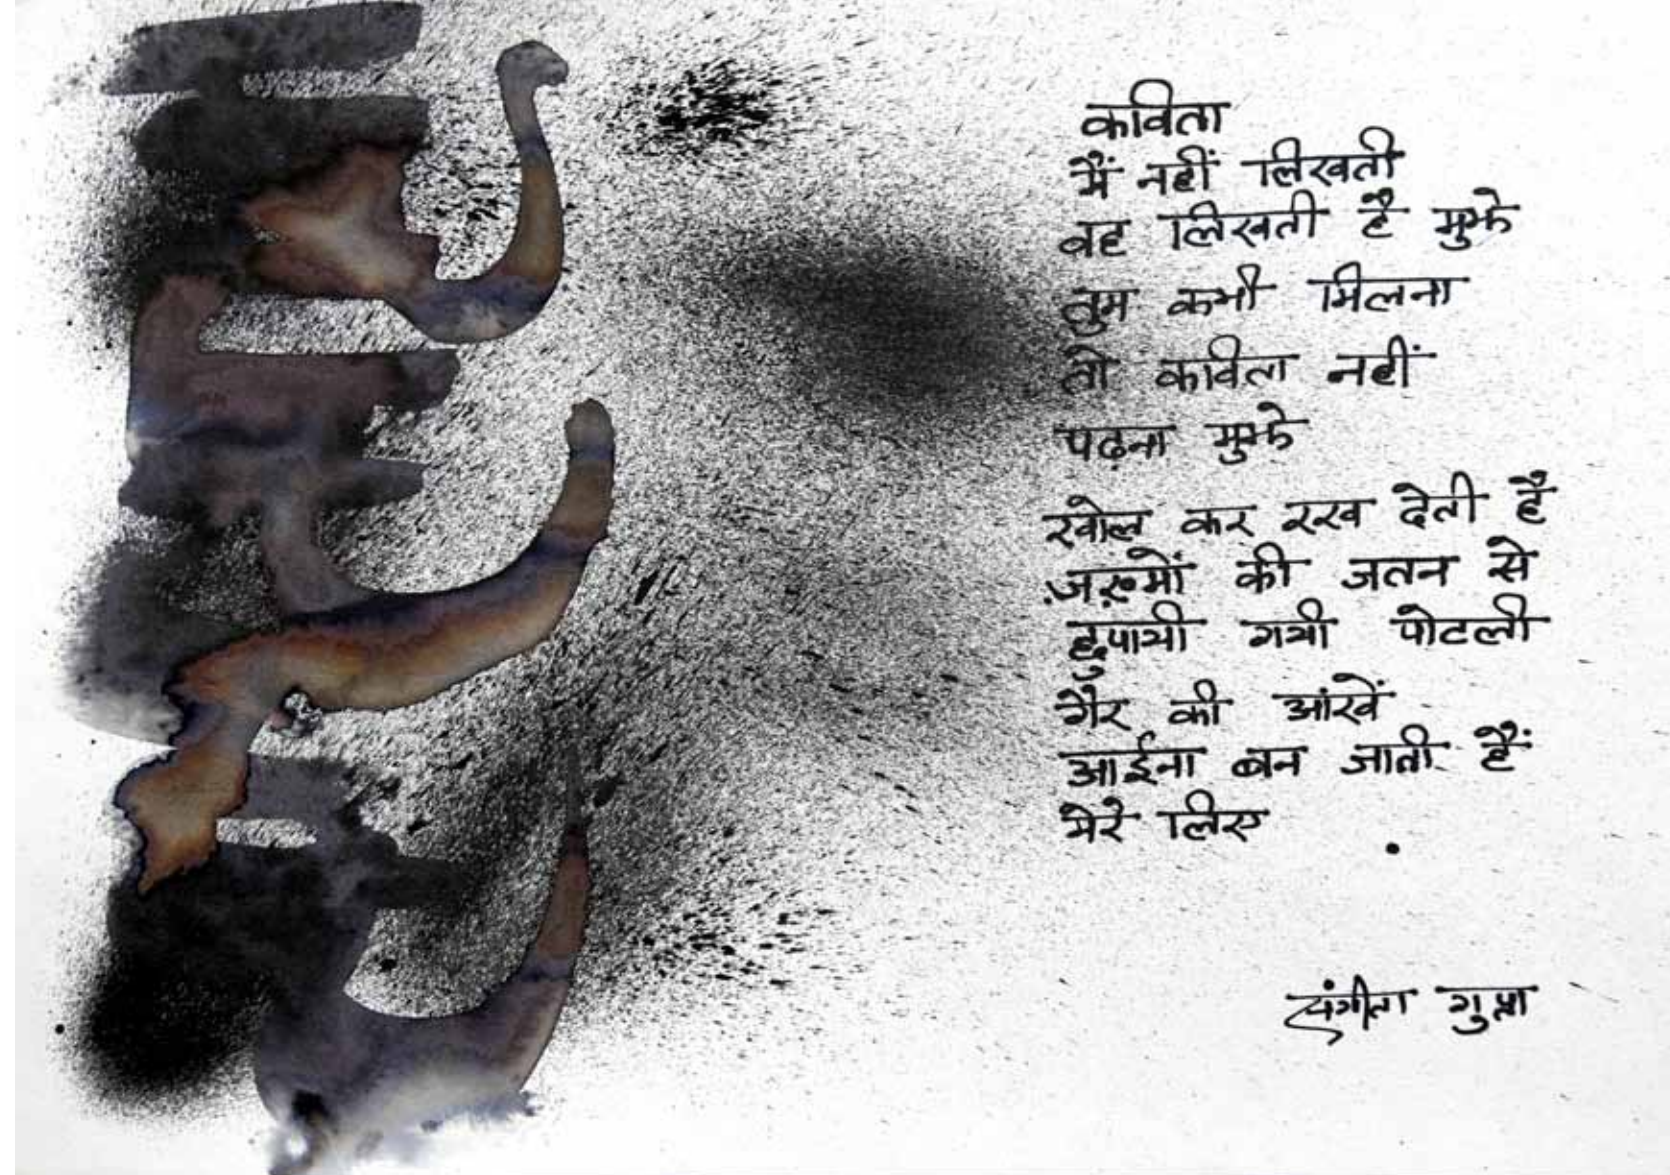 कविता
मैं नहीं लिखती
वह लिखती है मुझे
तुम कभी मिलना
तो कविता नहीं
पढ़ना मुझे
खोल कर रख देती है
ज़ख़्मों की जतन से
छुपायी गयी पोटली
गैर की आंखें
आईना बन जाती हैं
मेरे लिए
संगीता गुप्ता